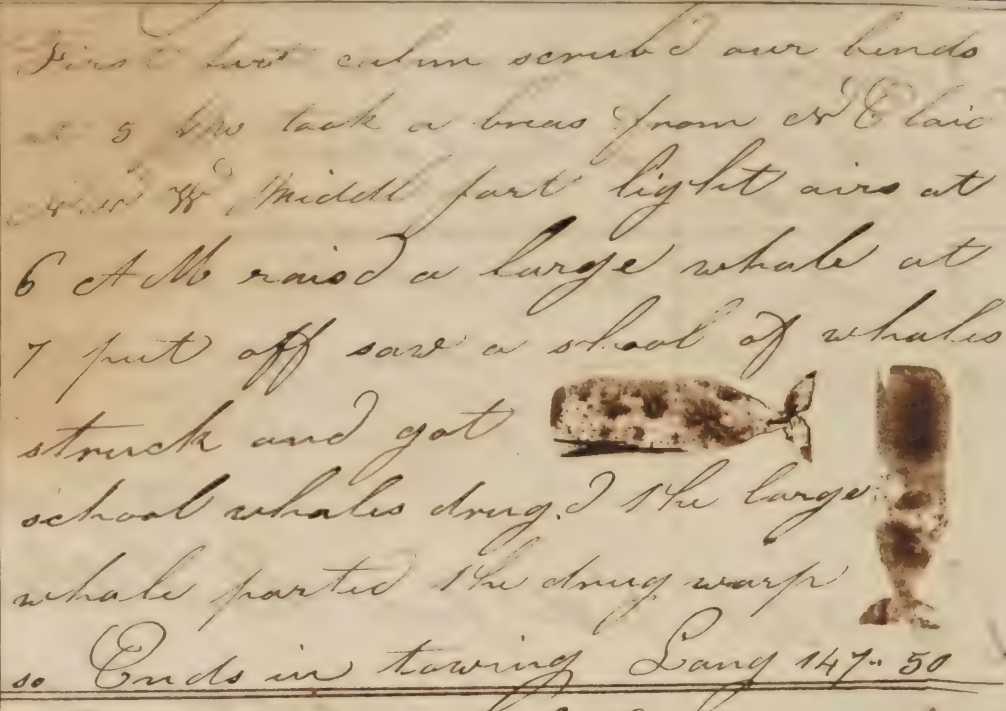 First Part calm scrubd our bends
at 5 took a breas from N E laid
W Middl part light airs at
6 A M raisd a large whale at
7 put off saw a shoal of whales
struck and got
school whales drug.d the large
whale parted the drug warp
so Ends in towing Long 147.. 50